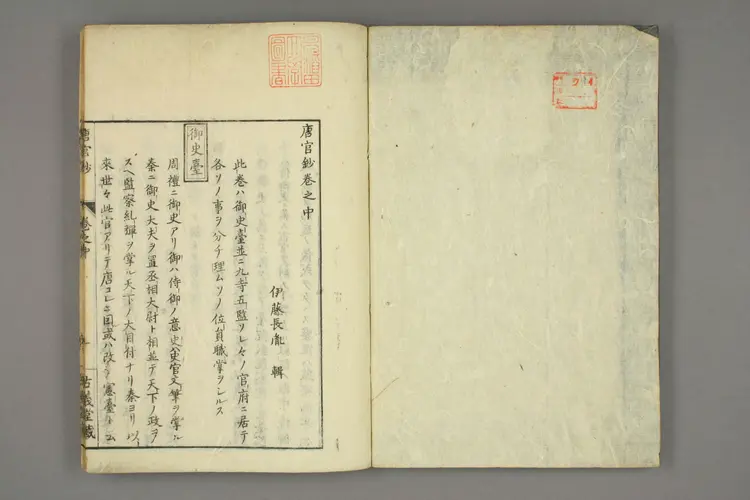 唐官鈔巻之中
伊藤長胤 輯
此巻ハ御史臺並ニ九寺五監ソレ〳〵ノ官府ニ居テ
各ソノ事ヲ分チ理ムソノ位員職掌ヲシルス
御史臺
周禮ニ御史アリ御ハ侍御ノ意史ハ史官文筆ヲ掌ル
秦ニ御史大夫ヲ置丞相大尉ト相並テ天下ノ政ヲ
スヘ監察糺弾ヲ掌ル天下ノ大目付ナリ秦ヨリ以
來世々此官アリテ唐コレニ因或ハ改テ憲臺トム
唐官鈔
巻之中
古義堂藏